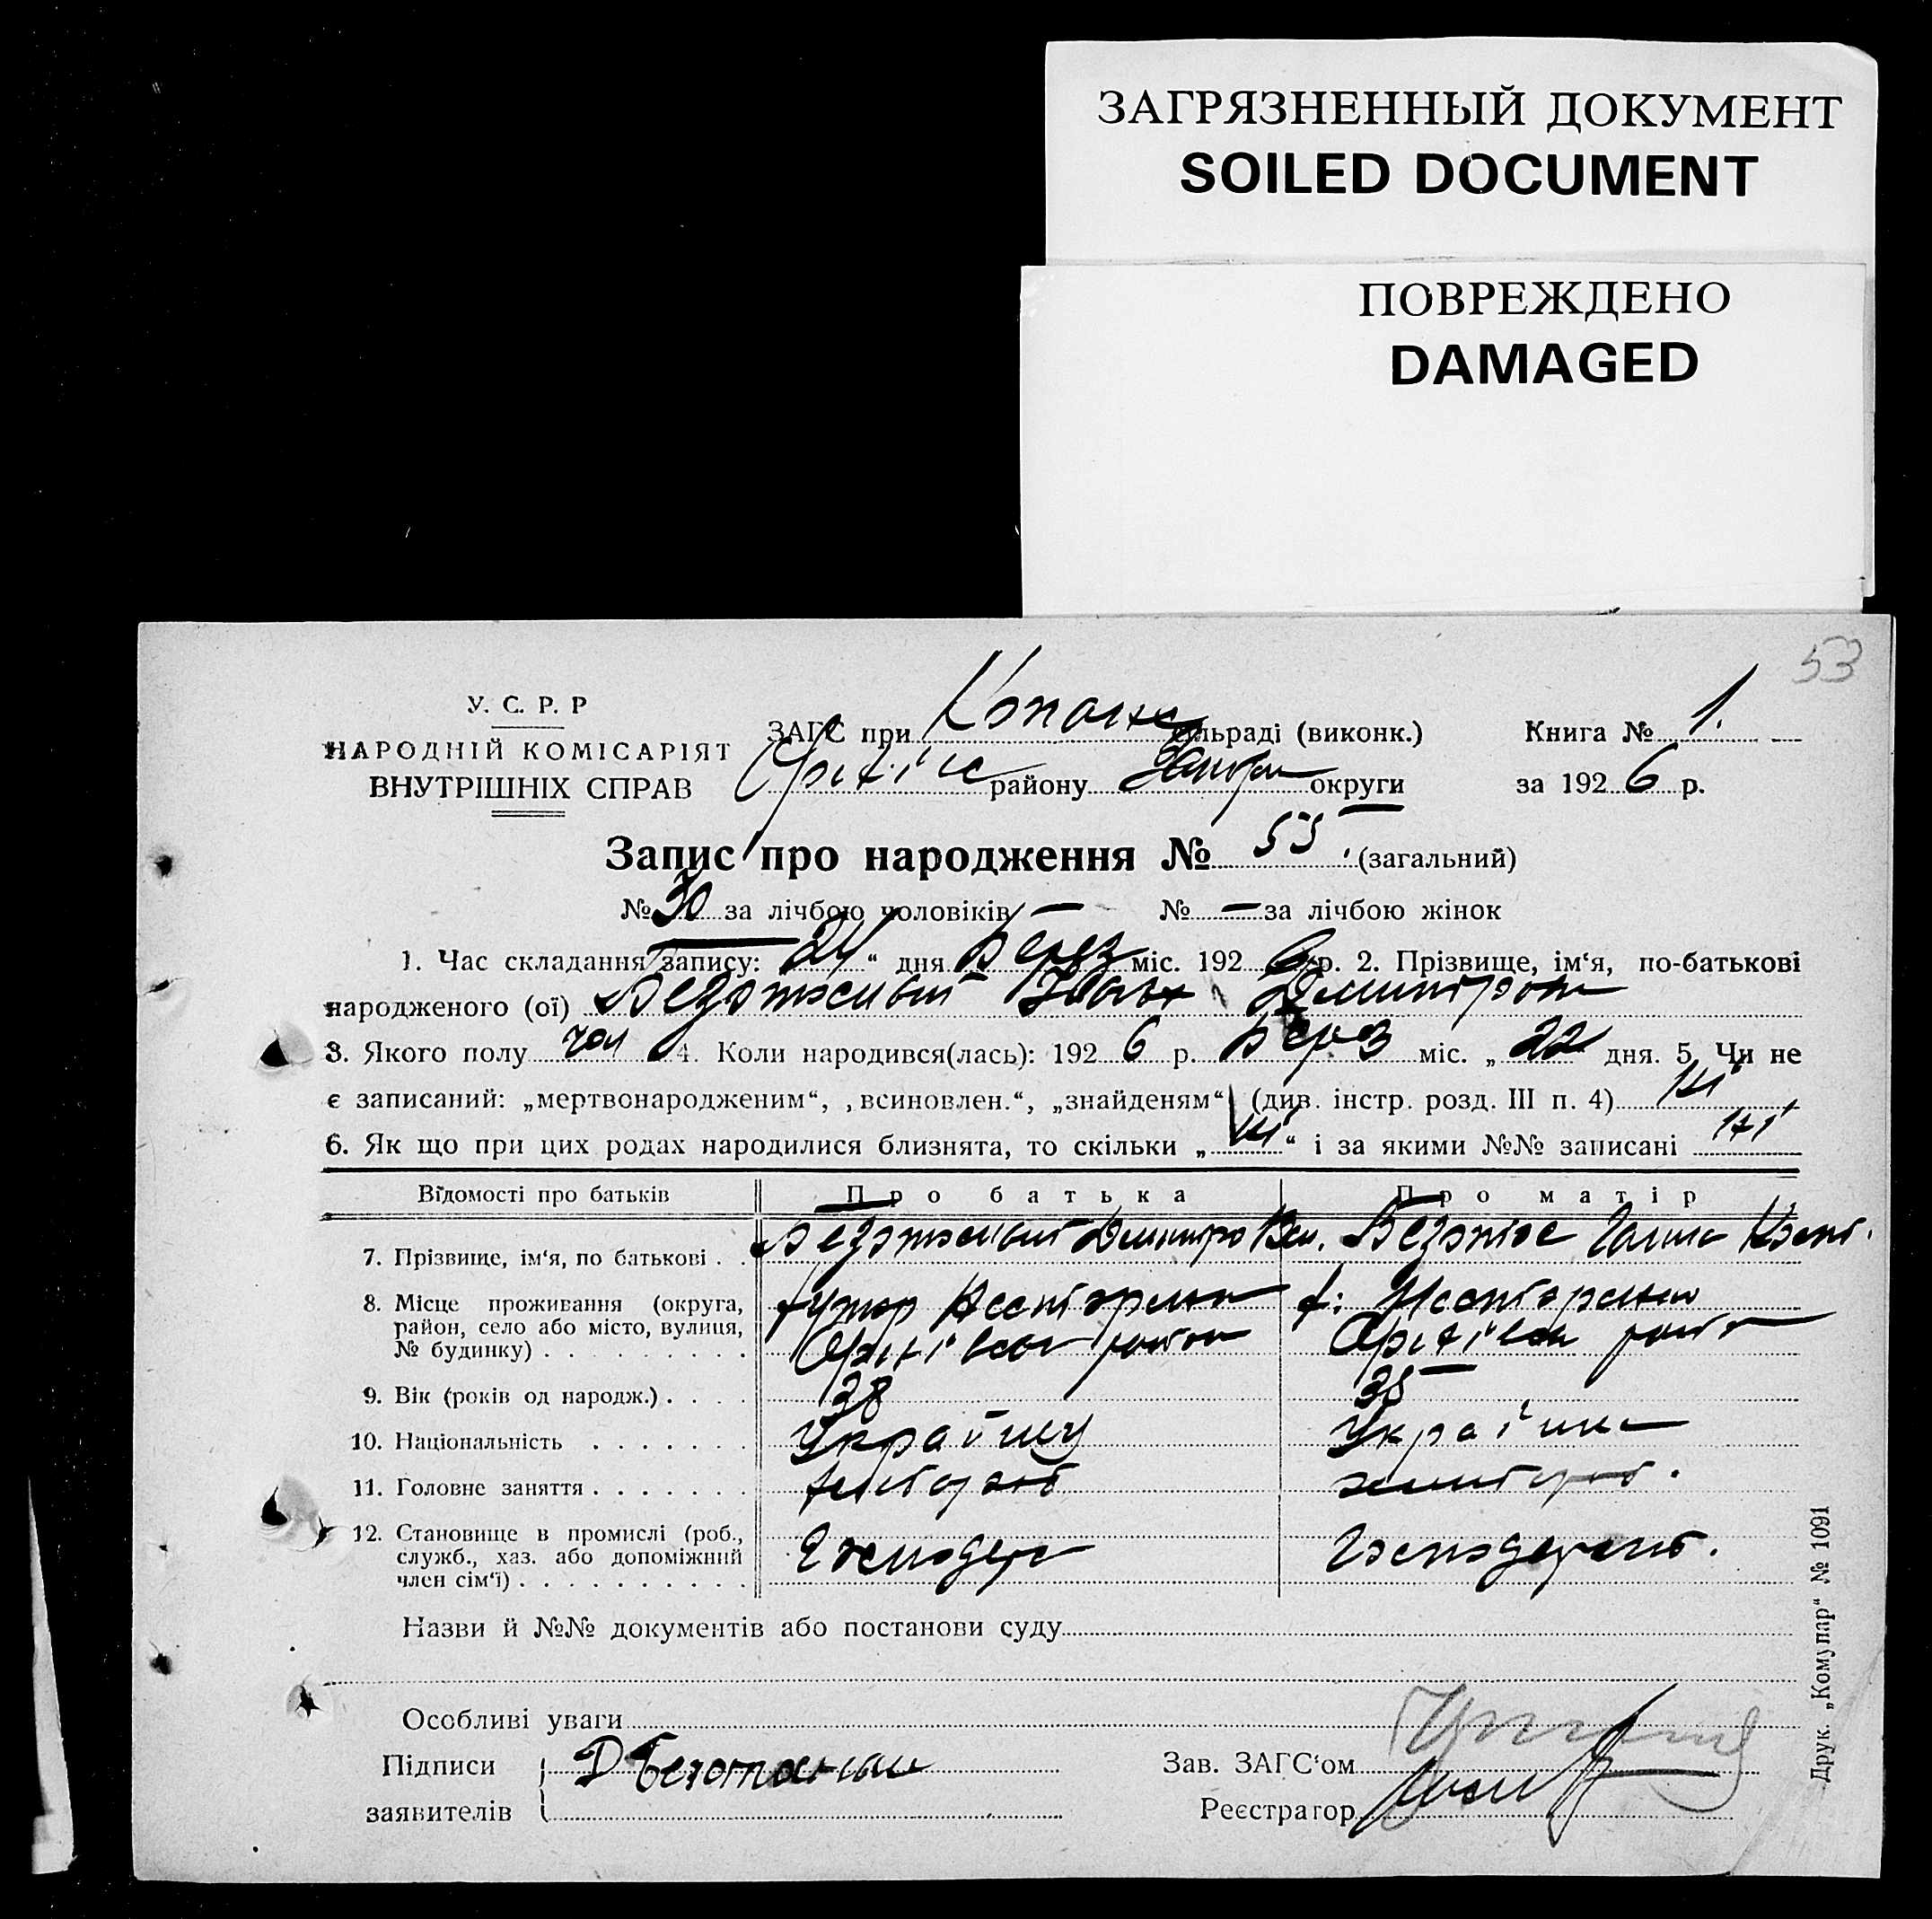 ЗАГРЯЗНЕННЫЙ ДОКУМЕНТ
SOILED DOCUMENT
ПОВРЕЖДЕНО
DAMAGED
53
У. С. Р. Р
НАРОДНІЙ КОМІСАРІЯТ
ВНУТРІШНІХ СПРАВ
ЗАГС при Копанс сільраді (виконк.)
Оріхів району Запор округи
Книга № 1.
за 1926 р.
Запис про народження № 55. (загальний)
№ 30 за лічбою чоловіків — № — за лічбою жінок
1. Час складання запису: 24“ дня Берез міс. 1926 р. 2. Прізвище, ім‘я, по-батькові
народженого (ої) Іван Дмитров
3. Якого полу чол 4. Коли народився(лась): 1926 р. Берез міс. „22“ дня. 5. Чи не
є записаний: „мертвонародженим“, „всиновлен.“, „знайденям“ (див. інстр. розд. III п. 4) ні
6. Як що при цих родах народилися близнята, то скільки „ні“ і за якими №№ записані ні
Відомості про батьків Про батька Про матір
7. Прізвище, ім‘я, по батькові . . Дмитро
8. Місце проживання (округа, район, село або місто, вулиця, № будинку) . . . . . . . . . хутор
9. Вік (років од народж.) . . . . 38 35
10. Національність . . . . . . . Українец Українка
11. Головне заняття . . . . . . . хлібороб
12. Становище в промислі (роб., служб., хаз. або допоміжний член сім‘ї) . . . . . . . . . . Господар
Назви й №№ документів або постанови суду
Особливі уваги
Підписи
заявителів
Зав. ЗАГС‘ом
Реєстратор
Друк. „Комупар“ № 1091